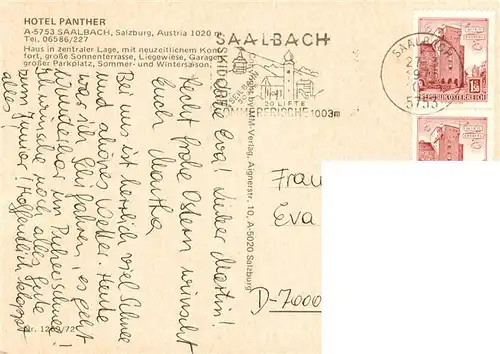 HOTEL PANTHER
A-5753 SAALBACH, Salzburg, Austria 1020 m
Tel. 06586/227
Haus in zentraler Lage, mit neuzeitlichem Kom-
fort, große Sonnenterrasse, Liegewiese, Garage,
großer Parkplatz, Sommer- und Wintersaison.
SAALBACH
SKIDORF
20 LIFTE
SOMMERFRISCHE 1003m
SAALBACH
5753
REPUBLIK ÖSTERREICH
Liebe Eva! Lieber Martin!
Recht frohe Ostern wünscht
Euch Martha
Bei uns ist herrlich viel Schnee
und schönes Wetter. Heute
war ich Skifahren, es geht
wunderbar im Pulverschnee!
Ich wünsche noch alles Gute
zum Junior! Hoffentlich klappt
alles!
Alignerstr. 10, A-5020 Salzburg
Frau
Eva
D-7000